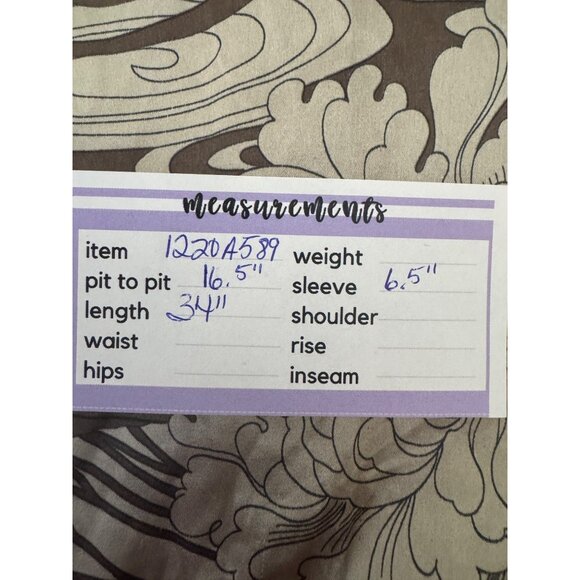 measurements
item 1220A589 weight
pit to pit 16.5" sleeve 6.5"
length 34" shoulder
waist rise
hips inseam